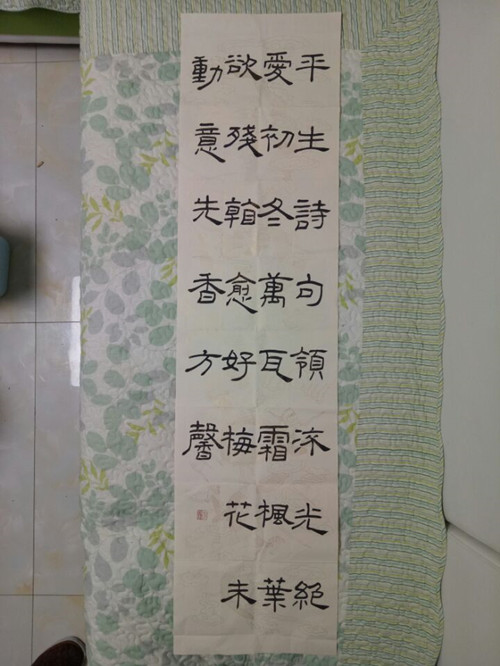 平生詩句領流光絕
愛初冬萬瓦霜楓葉
欲殘愈好梅花未
動意先香方馨